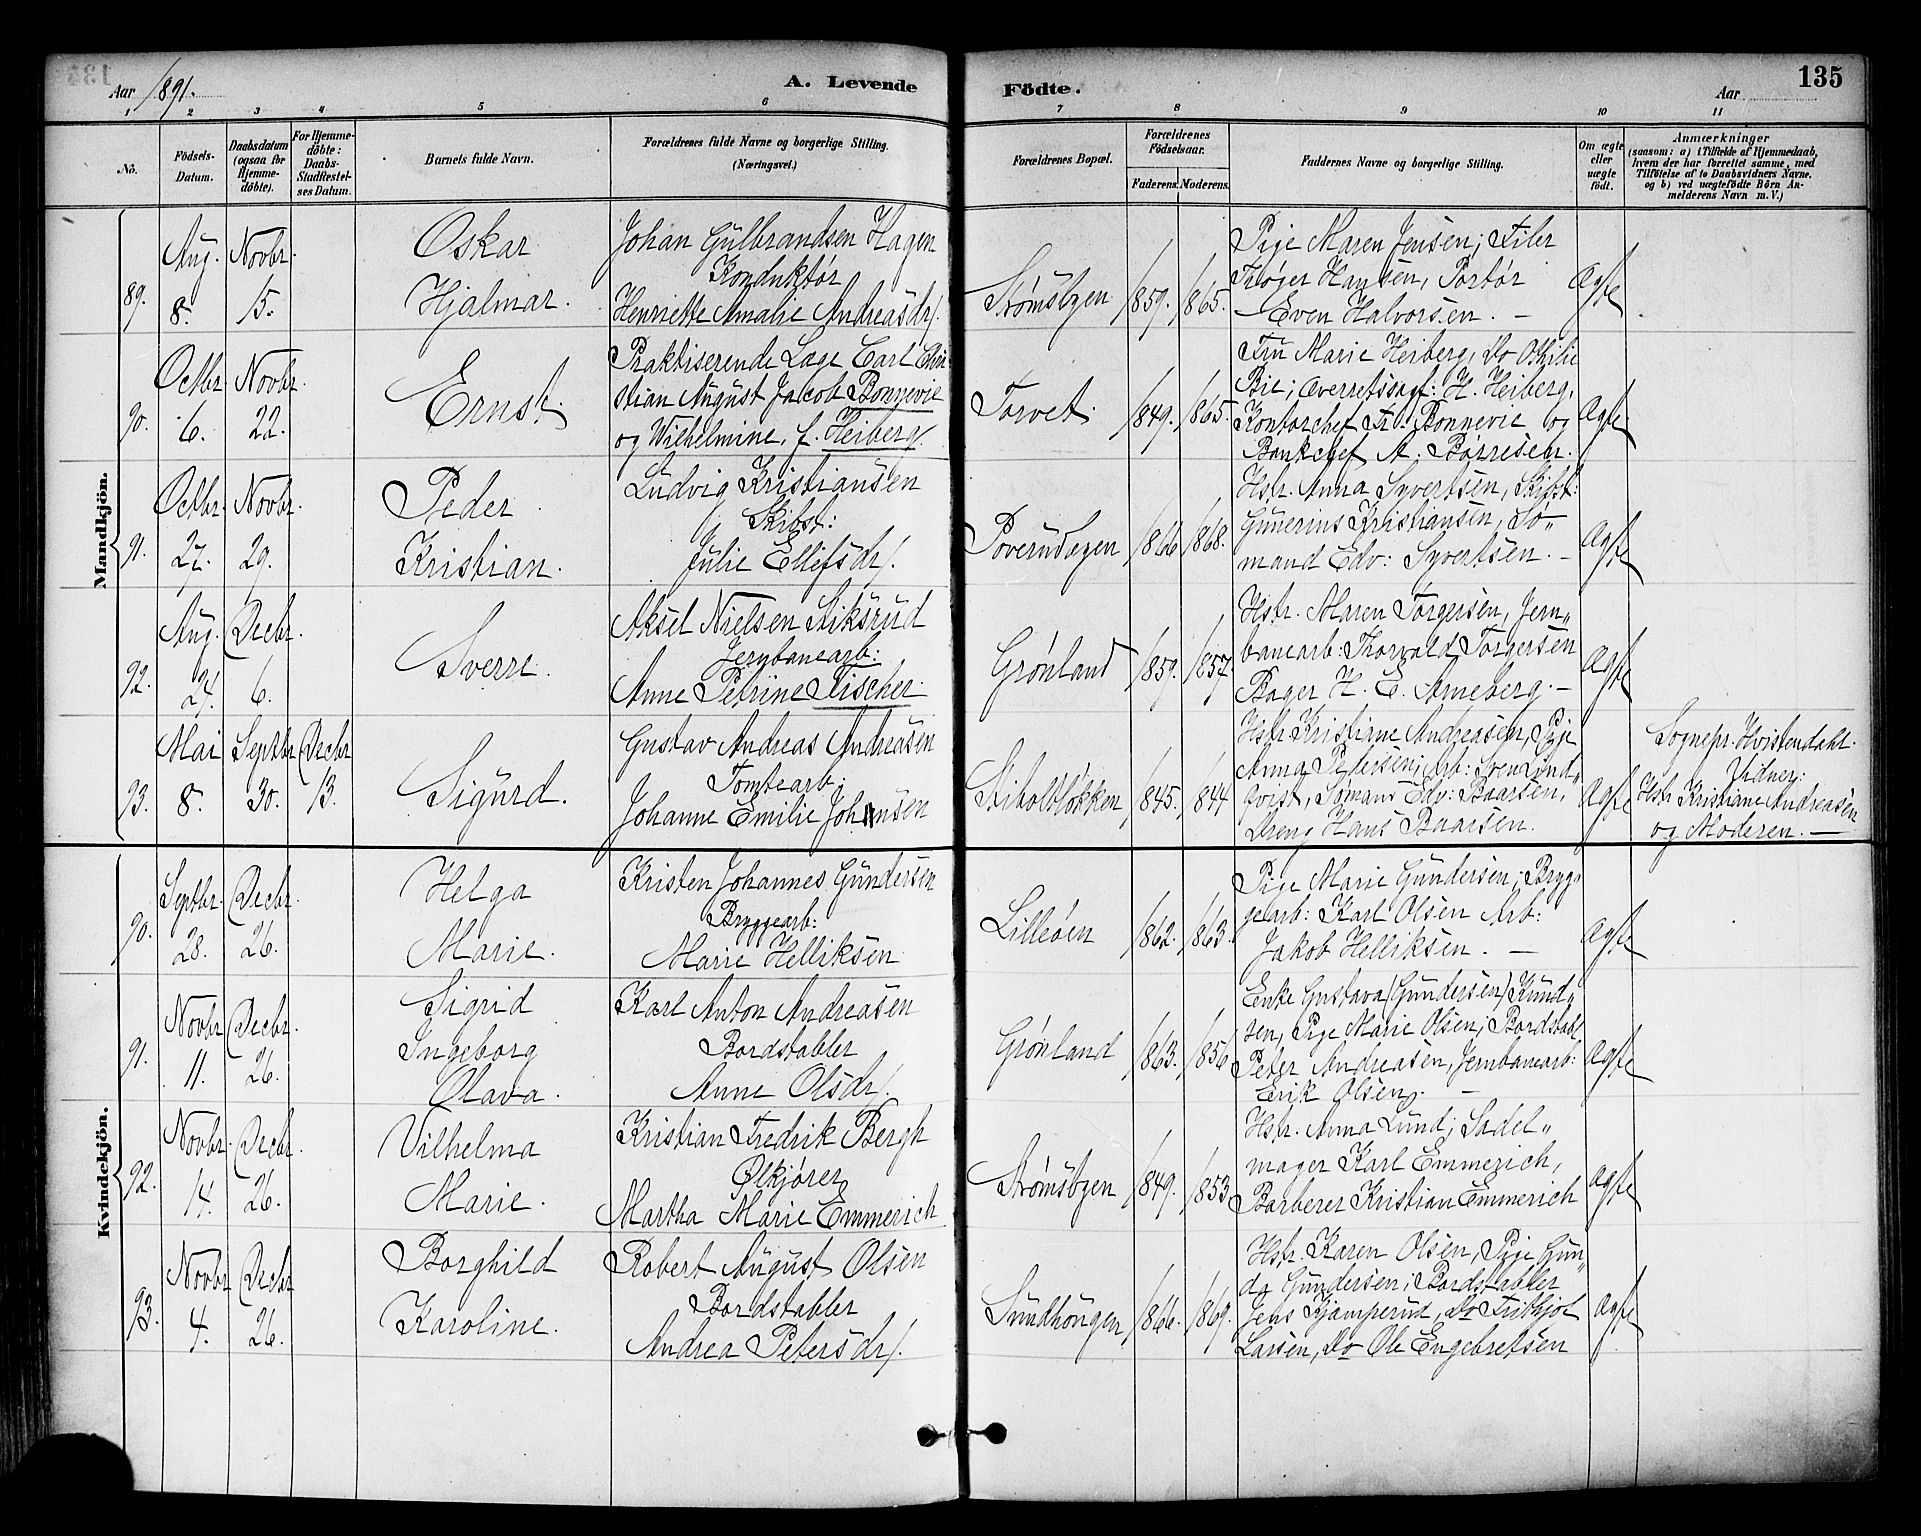 Aar 1891.
A. Levende
Födte.
Aar
135
1 2 3 4 5 6 7 8 9 10 11
No.
Födsels-
Datum.
Daabsdatum
(ogsaa for
Hjemme-
döbte).
For Hjemme-
döbte:
Daabs-
Stadfæstel-
ses Datum.
Barnets fulde Navn.
Forældrenes fulde Navne og borgerlige Stilling.
(Næringsvei.)
Forældrenes Bopæl.
Forældrenes
Födselsaar.
Faderens. Moderens.
Faddernes Navne og borgerlige Stilling.
Om ægte
eller
uægte
födt.
Anmærkninger
(saasom: a) i Tilfælde af Hjemmedaab,
hvem der har forrettet samme, med
Tilföielse af to Daabsvidners Navne,
og b) ved uægtefödte Börn An-
melderens Navn m. V.)
Mandkjön.
89.
Aug.
8.
Novbr.
15.
Oskar
Hjalmar.
Johan Gulbrandsen Hagen
Konduktør
Henriette Amalie Andreasdr/.
Strømsbyen
1859. 1865.
Pige Maren Jensen; Filer
Trøger Hansen, Portør
Even Halvorsen. —
Ægte
90.
Octbr.
6.
Novbr.
22.
Ernst.
Praktiserende Læge Carl Chri
stian August Jacob Bonnevie
og Wilhelmine, f. Heiberg/.
Torvet.
1849. 1865.
Fru Marie Heiberg, do Othilie
Bie; Overretssagf: H. Heiberg,
Kontorchef Fr. Bonnevie og
Bankchef A. Børresen.
Ægte
91.
Octbr.
27.
Novbr.
29.
Peder
Kristian.
Ludvig Kristiansen
Skibst:
Julie Ellefsdr/.
Poverudøgen
1866 1868.
Hstr. Anna Syvertsen, Skibst:
Gunerius Kristiansen, Sø„
mand Edv: Syvertsen. —
Ægte
92.
Aug.
24.
Decbr.
6.
Sverre.
Aksel Nielsen Siksrud
Jernbanearb:
Anne Petrine Fischer.
Grønland
1859. 1857.
Hstr. Maren Torgersen, Jern„
banearb: Thorvald Torgersen
Bager H. E. Arneberg. —
Ægte
93.
Mai
8.
Septbr
30.
Decbr
13.
Sigurd.
Gustav Andreas Andreasen
Tomtearb:
Johanne Emilie Johansen
Stiboltløkken
1845. 1844
Hstr Kristiane Andreasen, Pige
Anna Pedersen; Arb: Sven Lind„
qvist, Sømand Edv: Baarsen,
Dreng Hans Baarsen.
Ægte
Sognepr. Hvistendahl.
Vidner:
Hstr Kristiane Andreasen
og Moderen. —
Kvindekjön.
90.
Septbr.
28.
Decbr.
26.
Helga
Marie.
Kristen Johannes Gundersen
Bryggearb:
Marie Helliksen
Lilleøen
1862. 1863.
Pige Marie Gundersen; Bryg„
gearb: Karl Olsen Arb:
Jakob Helliksen. —
Ægte
91.
Novbr
11.
Decbr.
26.
Sigrid
Ingeborg
Olava.
Karl Anton Andreasen
Bordstabler
Anne Olsdr/.
Grønland
1863. 1856
Enke Gustava (Gundersen) Knud„
sen, Pige Marie Olsen; Bordstabl
Peter Andreasen, Jernbanearb:
Erik Olsen. —
Ægte
92.
Novbr.
14.
Decbr.
26.
Vilhelma
Marie.
Kristian Fredrik Bergh
Ølkjører
Martha Marie Emmerich
Strømsbyen
1849. 1853
Hstr. Anna Lund; Sadel„
mager Karl Emmerich,
Barberer Kristian Emmerich
Ægte
93.
Novbr
4.
Decbr
26.
Borghild
Karoline.
Robert August Olsen
Bordstabler
Andrea Petersdr/.
Sundhougen
1866. 1869.
Hstr. Karen Olsen, Pige Gun„
da Gundersen; Bordstabler
Jens Kjamperud, do Frithjof
Larsen, do Ole Engebretsen
Ægte